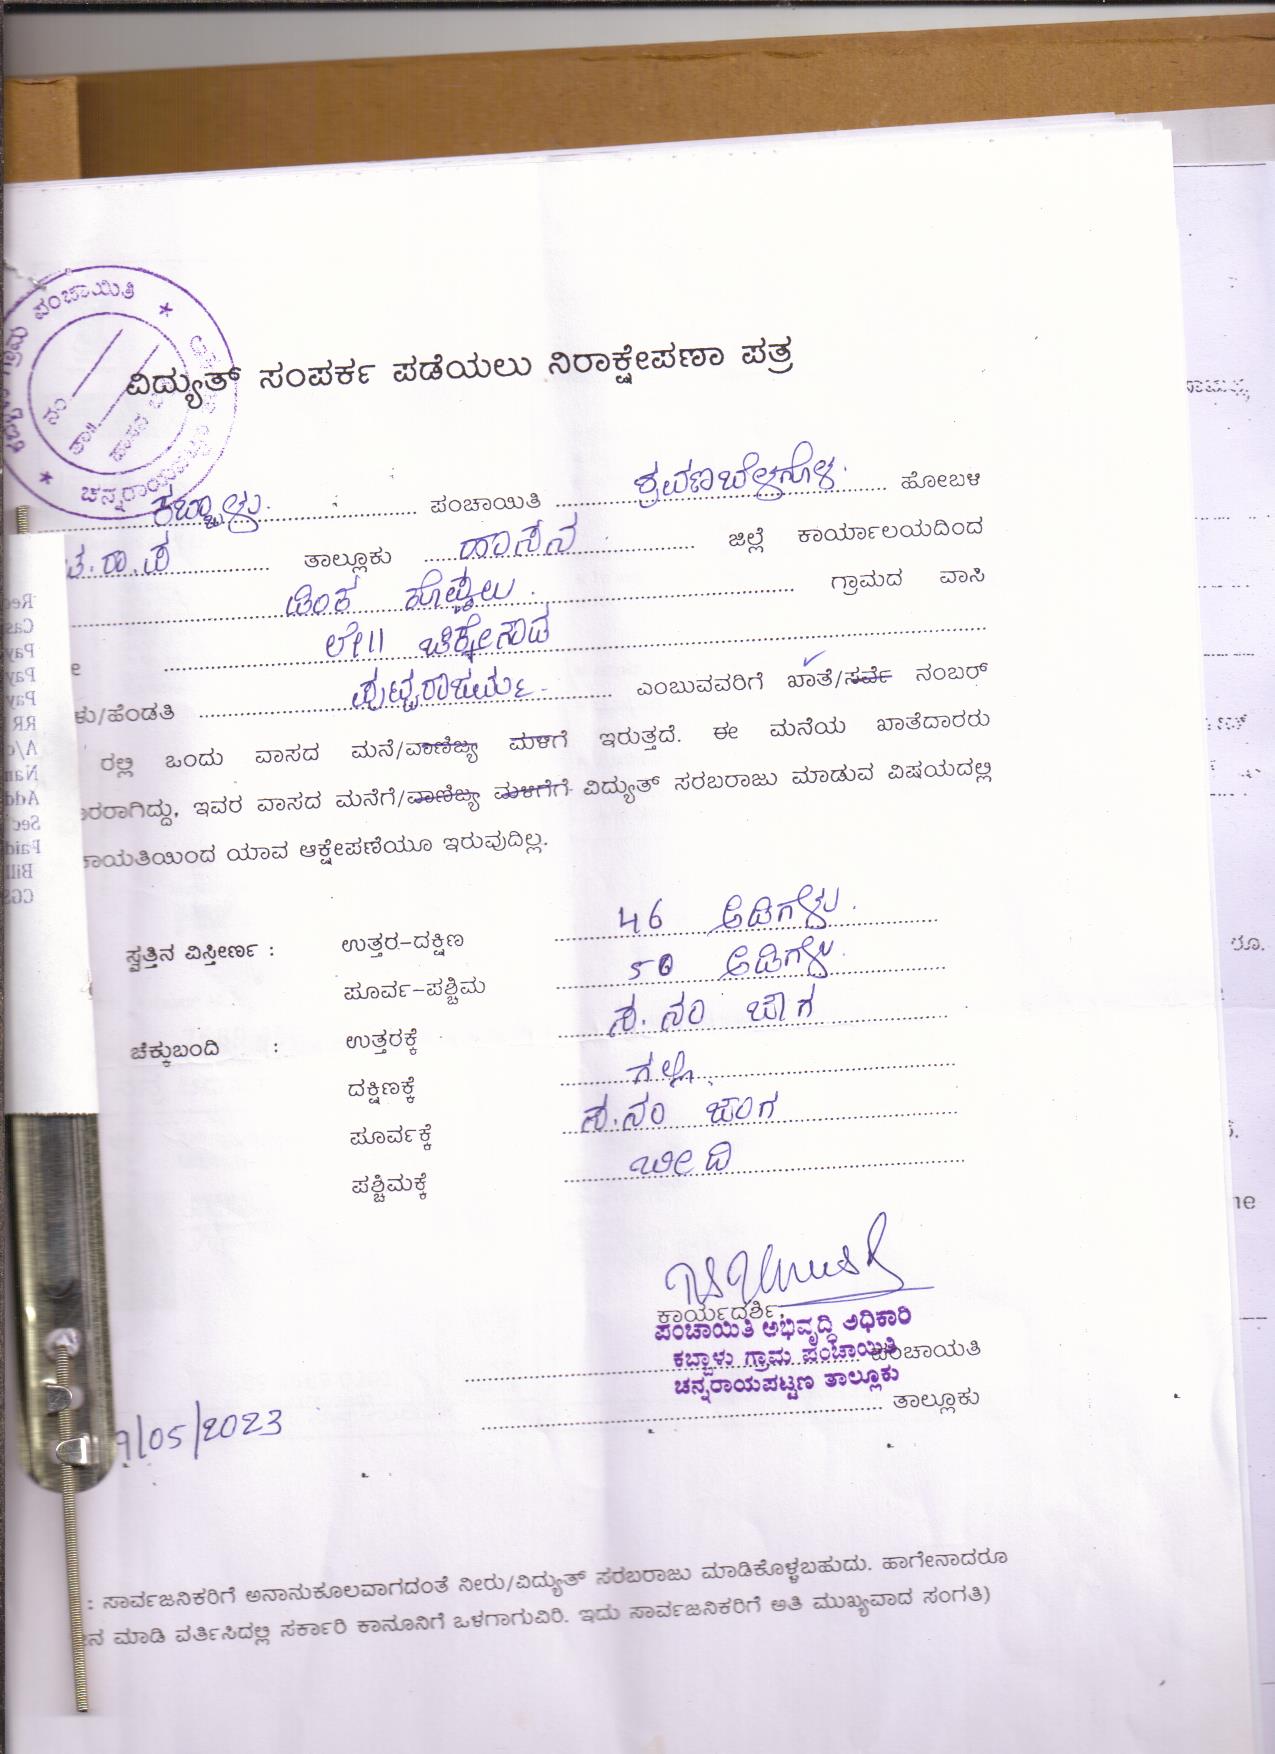 ಪಂಚಾಯಿತಿ
ವಿದ್ಯುತ್ ಸಂಪರ್ಕ ಪಡೆಯಲು ನಿರಾಕ್ಷೇಪಣಾ ಪತ್ರ
ಕಬ್ಬಾಳು ಪಂಚಾಯಿತಿ ಶ್ರವಣಬೆಳಗೊಳ ಹೋಬಳಿ
ಚ.ರಾ.ಪ ತಾಲ್ಲೂಕು ಹಾಸನ ಜಿಲ್ಲೆ ಕಾರ್ಯಾಲಯದಿಂದ
ಗ್ರಾಮದ ವಾಸಿ
ಲೇ||
ಳು/ಹೆಂಡತಿ ಎಂಬುವವರಿಗೆ ಖಾತೆ/ಸರ್ವೆ ನಂಬರ್
ರಲ್ಲಿ ಒಂದು ವಾಸದ ಮನೆ/ವಾಣಿಜ್ಯ ಮಳಿಗೆ ಇರುತ್ತದೆ. ಈ ಮನೆಯ ಖಾತೆದಾರರು
ದಾರರಾಗಿದ್ದು, ಇವರ ವಾಸದ ಮನೆಗೆ/ವಾಣಿಜ್ಯ ಮಳಿಗೆಗೆ ವಿದ್ಯುತ್ ಸರಬರಾಜು ಮಾಡುವ ವಿಷಯದಲ್ಲಿ
ಚಾಯತಿಯಿಂದ ಯಾವ ಆಕ್ಷೇಪಣೆಯೂ ಇರುವುದಿಲ್ಲ.
ಸ್ವತ್ತಿನ ವಿಸ್ತೀರ್ಣ : ಉತ್ತರ-ದಕ್ಷಿಣ 46 ಅಡಿಗಳು.
ಪೂರ್ವ-ಪಶ್ಚಿಮ 50 ಅಡಿಗಳು.
ಚೆಕ್ಕುಬಂದಿ : ಉತ್ತರಕ್ಕೆ ಸ.ನಂ ಜಾಗ
ದಕ್ಷಿಣಕ್ಕೆ ಗಲ್ಲಿ
ಪೂರ್ವಕ್ಕೆ ಸ.ನಂ ಜಾಗ
ಪಶ್ಚಿಮಕ್ಕೆ ಬೀದಿ
ಕಾರ್ಯದರ್ಶಿ,
ಪಂಚಾಯಿತಿ ಅಭಿವೃದ್ಧಿ ಅಧಿಕಾರಿ
ಕಬ್ಬಾಳು ಗ್ರಾಮ ಪಂಚಾಯಿತಿ ಪಂಚಾಯತಿ
ಚನ್ನರಾಯಪಟ್ಟಣ ತಾಲ್ಲೂಕು
ತಾಲ್ಲೂಕು
9/05/2023
: ಸಾರ್ವಜನಿಕರಿಗೆ ಅನಾನುಕೂಲವಾಗದಂತೆ ನೀರು/ವಿದ್ಯುತ್ ಸರಬರಾಜು ಮಾಡಿಕೊಳ್ಳಬಹುದು. ಹಾಗೇನಾದರೂ
ಮಾಡಿ ವರ್ತಿಸಿದಲ್ಲಿ ಸರ್ಕಾರಿ ಕಾನೂನಿಗೆ ಒಳಗಾಗುವಿರಿ. ಇದು ಸಾರ್ವಜನಿಕರಿಗೆ ಅತಿ ಮುಖ್ಯವಾದ ಸಂಗತಿ)